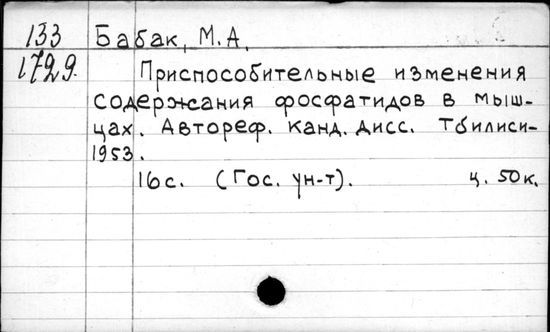 133 Бабак, М.А.
1729. Приспособительные изменения
содержания фосфатидов в мыш-
цах. Автореф. канд. дисс. Тбилиси-
1953.
16 с. (Гос. ун-т). ц. 50 к.